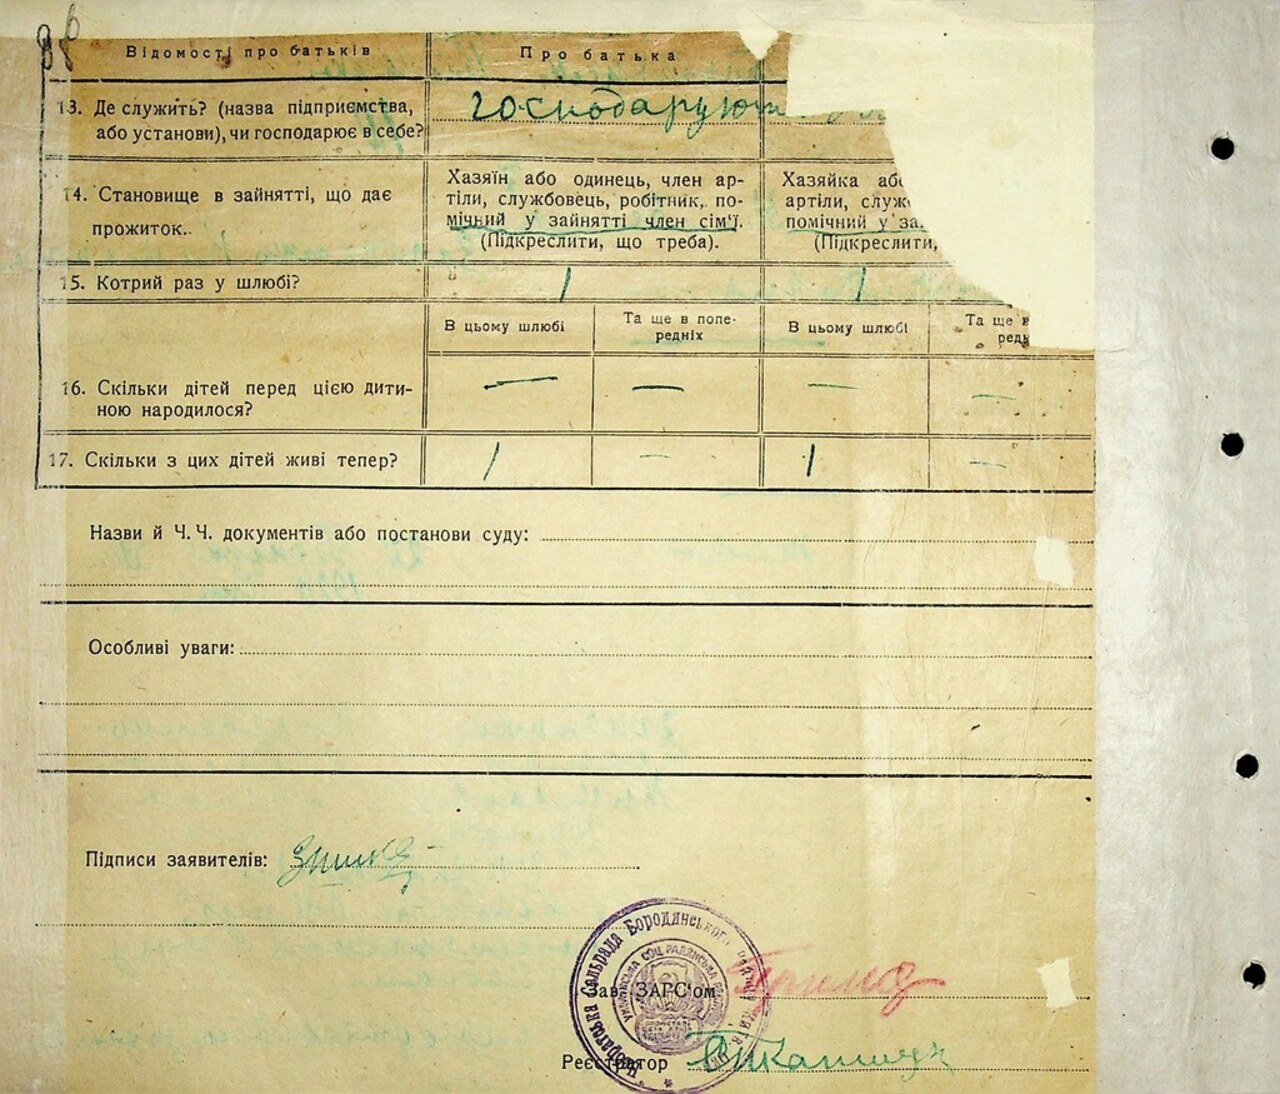 Відомості про батьків
Про батька
13. Де служить? (назва підприємства,
або установи), чи господарює в себе?
господарують
14. Становище в зайнятті, що дає
прожиток.
Хазяїн або одинець, член ар-
тілі, службовець, робітник, по-
мічний у зайнятті член сім'ї.
(Підкреслити, що треба).
Хазяйка або
артілі, служ
помічний у за
(Підкреслити,
15. Котрий раз у шлюбі?
1
1
В цьому шлюбі
Та ще в попе-
редніх
В цьому шлюбі
Та ще в
редн
16. Скільки дітей перед цією дити-
ною народилося?
— — — —
17. Скільки з цих дітей живі тепер?
1 — 1 —
Назви й Ч. Ч. документів або постанови суду:
Особливі уваги:
Підписи заявителів:
Бородянського
УКРАЇНСЬКА СОЦ. РАДЯНСЬКА
Зав. ЗАРС'ом
Реєстратор